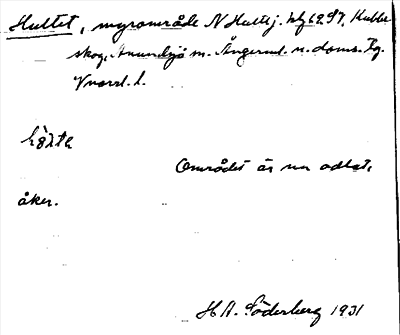 Hultet, myrområde N Hultsj. hfg 6297, Hubbo-
skog, Anundsjö sn. Ångerml. n. doms. fg.
Vnorrl. l.
hö̀lta
Området är nu odlat,
åker.
H A. Söderberg 1931